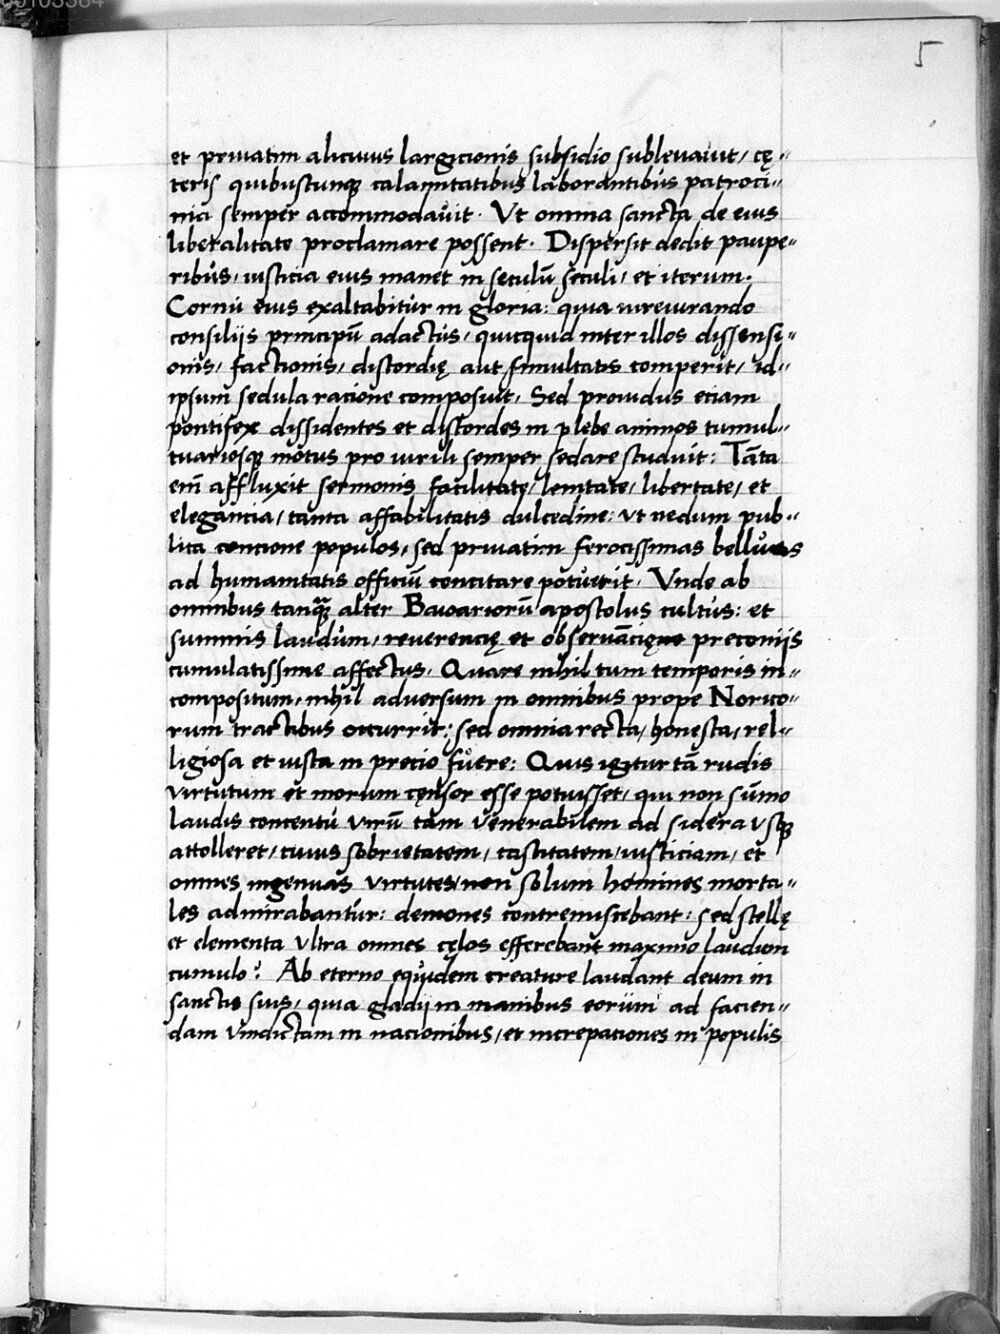 00103384
5
et priuatim alicuius largicionis subsidio subleuauit, cę„
teris quibuscunqȝ calamitatibus laborantibus patroci„
nia semper accommodauit. Vt omnia sancta de eius
liberalitate proclamare possent. Dispersit dedit paupe„
ribus, iusticia eius manet in seculū seculi, et iterum.
Cornu eius exaltabitur in gloria: quia iureiurando
consilijs principū adactus, quicquid inter illos dissensi„
onis, factionis, discordię aut simultatis comperit, id„
ipsum sedula racione composuit, Sed prouidus eciam
pontifex dissidentes et discordes in plebe animos tumul„
tuariosqȝ motus pro uirili semper sedare studuit: Tāta
em̄ affluxit sermonis facilitate, lenitate, libertate, et
elegancia, tanta affabilitatis dulcedine: vt nedum pub„
lica concione populos, sed priuatim ferocissimas belluas
ad humanitatis officiū concitare potuerit. Vnde ab
omnibus tanqȝ alter Bauoariorū apostolus cultus: et
summis laudum, reuerencię et obseruācięqȝ preconijs
cumulatissime affectus. Quare nihil tum temporis in„
compositum, nihil aduersum in omnibus prope Norico„
rum tractibus occurrit: sed omnia recta, honesta, rel„
ligiosa et iusta in precio fuere: Quis igitur tā rudis
virtutum et morum censor esse potuisset, qui non sūmo
laudis concentu virū tam venerabilem ad sidera vsqȝ
attolleret, cuius sobrietatem, castitatem, iusticiam, et
omnes ingenuas virtutes, non solum homines morta„
les admirabantur: demones contremiscebant: sed stellę
et elementa vltra omnes cęlos efferebant maximo laudum
cumulo? Ab eterno equidem creature laudant deum in
sanctis suis, quia gladij in manibus eorum ad facien„
dam vindictam in nacionibus, et increpaciones in populis